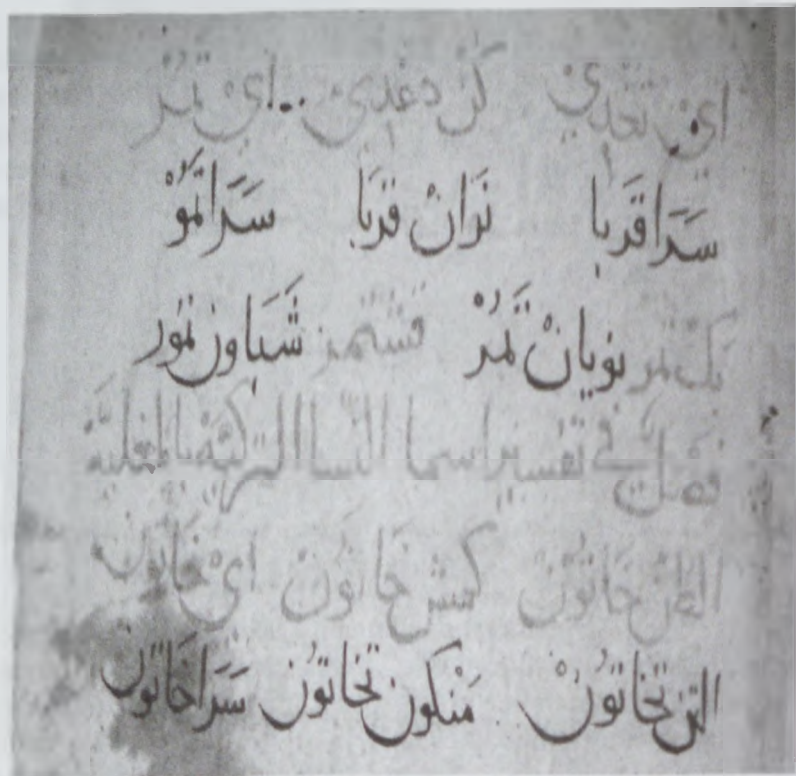 اي تغدي كن دغدي اي تمر
سَرَاقَربا نَرَانْ قربَا
بك تمر نويانْ تَمُرْ شَبَاون تمور
فصل في تفسير اسما النسا التركية المغلية
التن خَاتُوْن كمش خَاتُون اي خَاتون
التن تخَاتُونْ مَنْكون تخَاتُون سَرَاخَاتون